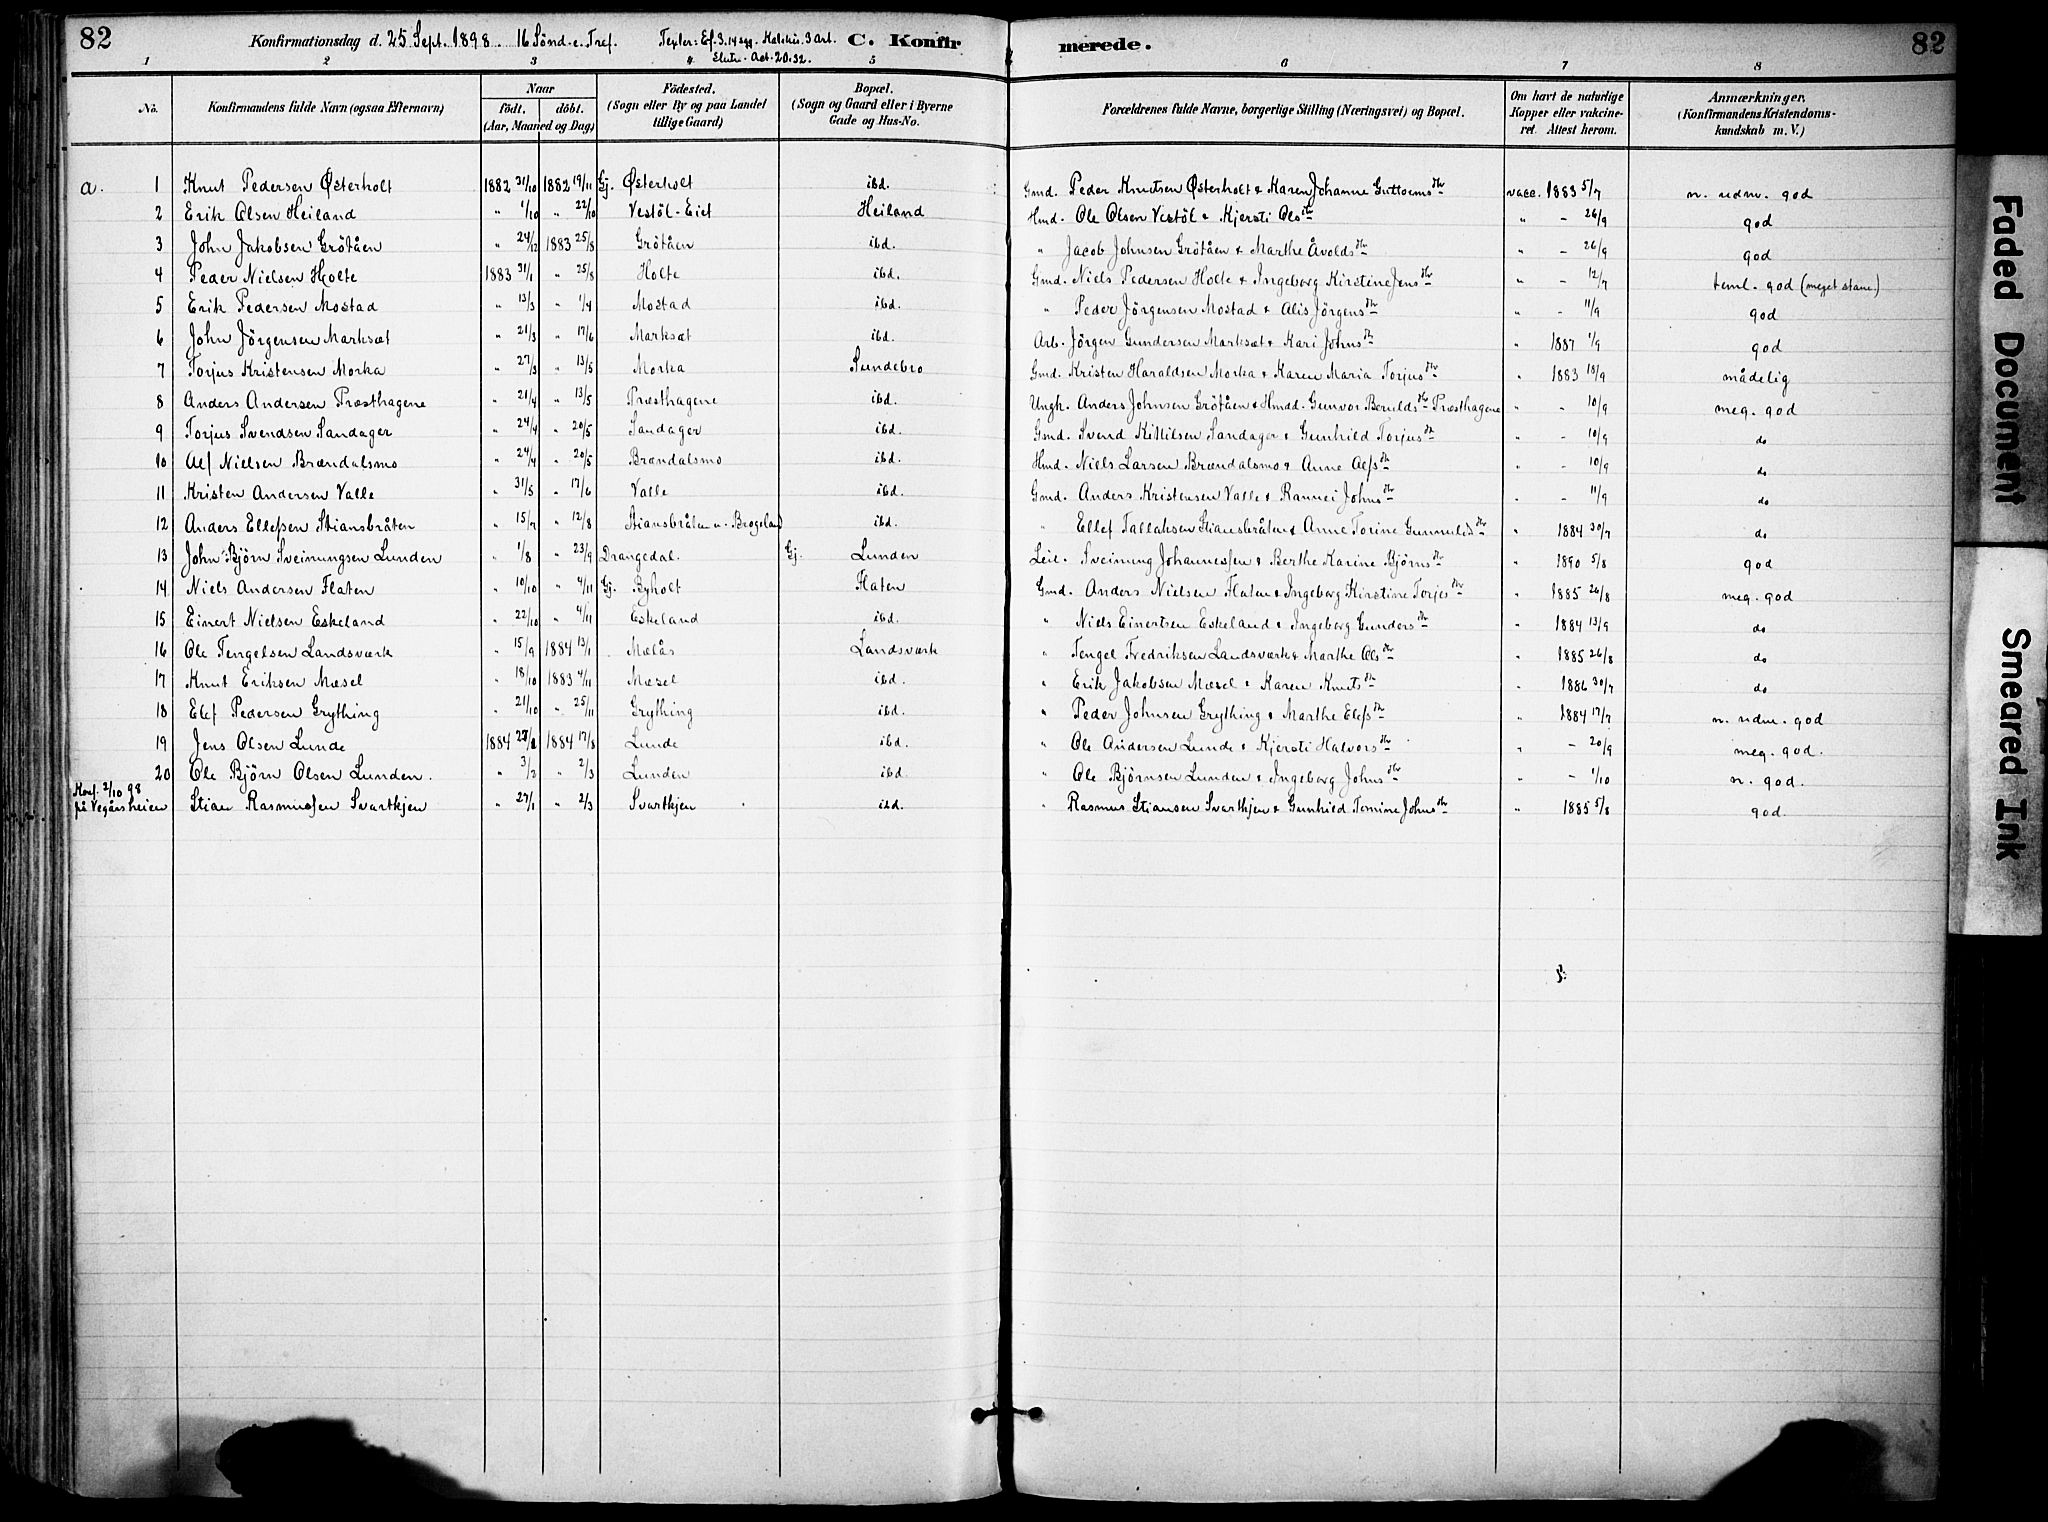 82 Konfirmationsdag d. 25 Sept. 1898. 16 Sönd. e. Tref. Texter: Ef. 3. 14 C. Konfirmerede. 82
Act. 20.32.
1 2 3 4 5 6 7 8
No. Konfirmandens fulde Navn (ogsaa Efternavn) Naar födt. döbt. (Aar, Maaned og Dag) Födested. (Sogn eller By og paa Landet tillige Gaard) Bopæl. (Sogn og Gaard eller i Byerne Gade og Hus-No. Forældrenes fulde Navne, borgerlige Stilling (Næringsvei) og Bopæl. Om havt de naturlige Kopper eller vakcineret. Attest herom. Anmærkninger. (Konfirmandens Kristendomskundskab m. V.)
a. 1 Knut Pedersen Østerholt 1882 31/10 1882 19/11 Gj. Østerholt ibd. Gmd. Peder Knutsen Østerholt & Karen Johanne Guttorms dtr vacc. 1883 5/7 n. udm. god
2 Erik Olsen Heiland " 1/10 " 22/10 Vestöl-Eiet Heiland Hmd. Ole Olsen Vestöl & Kjersti Ols dtr " - 26/9 god
3 John Jakobsen Grötåen " 24/12 1883 25/8 Grötåen ibd. " Jacob Johnsen Grötåen & Marthe Åvolds dtr " - 26/9 god
4 Peder Nielsen Holte 1883 31/1 " 25/8 Holte ibd. Gmd. Niels Pedersen Holte & Ingeborg Kirstine Jens dtr " - 12/7 teml. god (meget stam.)
5 Erik Pedersen Mostad " 13/3 " 1/4 Mostad ibd. " Peder Jörgensen Mostad & Alis Jörgens dtr " - 11/9 god
6 John Jörgensen Marksæt " 21/3 " 17/6 Marksæt ibd. Arb. Jörgen Gundersen Marksæt & Kari Johns dtr " 1887 1/9 god
7 Torjus Kristensen Morka " 27/3 " 13/5 Morka Sundebro Gmd. Kristen Haraldsen Morka & Karen Maria Torjus dtr " 1883 18/9 mådelig
8 Anders Andersen Præsthagene " 21/4 " 13/5 Præsthagene ibd. Ungk. Anders Johnsen Grötåen & Hmdd. Gunvor Berulds dtr Præsthagene " - 10/9 meg. god
9 Torjus Svendsen Sandager " 24/4 " 20/5 Sandager ibd. Gmd. Svend Kittilsen Sandager & Gunhild Torjus dtr " - 10/9 do
10 Alf Nielsen Brændalsmo " 24/4 " 20/5 Brændalsmo ibd. Hmd. Niels Larsen Brændalsmo & Anne Alfs dtr " - 10/9 do
11 Kristen Andersen Valle " 31/5 " 17/6 Valle ibd. Gmd. Anders Kristensen Valle & Rannei Johns dtr " - 11/9 do
12 Anders Ellefsen Stiansbråten " 15/7 " 12/8 Stiansbråten u. Brogeland ibd. " Ellef Tallaksen Stiansbråten & Anne Torine Gunnulds dtr " 1884 30/7 do
13 John Björn Sveinungsen Lunden " 1/8 " 23/9 Drangedal. Gj. Lunden Leil. Sveinung Johannessen & Berthe Karine Bjørns dtr " 1890 5/8 god
14 Niels Andersen Flaten " 10/10 " 4/11 Gj. Byholt Flaten Gmd. Anders Nielsen Flaten & Ingeborg Kirstine Torjes dtr " 1885 26/8 meg. god
15 Einert Nielsen Eskeland " 22/10 " 4/11 Eskeland ibd. " Niels Einertsen Eskeland & Ingeborg Gunders dtr " 1884 13/9 do
16 Ole Tengelsen Landsværk " 15/9 1884 13/1 Mælås Landsværk " Tengel Fredriksen Landsværk & Marthe Ols dtr " 1885 26/8 do
17 Knut Eriksen Mæsel " 18/10 1883 4/11 Mæsel ibd. " Erik Jakobsen Mæsel & Karen Knuts dtr " 1886 30/7 do
18 Elef Pedersen Grything " 21/10 " 25/11 Grything ibd. " Peder Johnsen Grything & Marthe Elefs dtr " 1884 17/7 n. udm. god
19 Jens Olsen Lunde 1884 1884 17/8 Lunde ibd. " Ole Andersen Lunde & Kjersti Halvors dtr " - 20/9 meg. god.
20 Ole Björn Olsen Lunden. " 3/2 " 2/3 Lunden ibd. " Ole Björnsen Lunden & Ingeborg Johns dtr " - 1/10 n. god.
Konf. 2/10 98 på Vegårsheien Stian Rasmussen Svartkjen " 27/1 " 2/3 Svartkjen ibd. " Rasmus Stiansen Svartkjen & Gunhild Tomine Johns dtr " 1885 5/8 god.
Faded Document
Smeared Ink